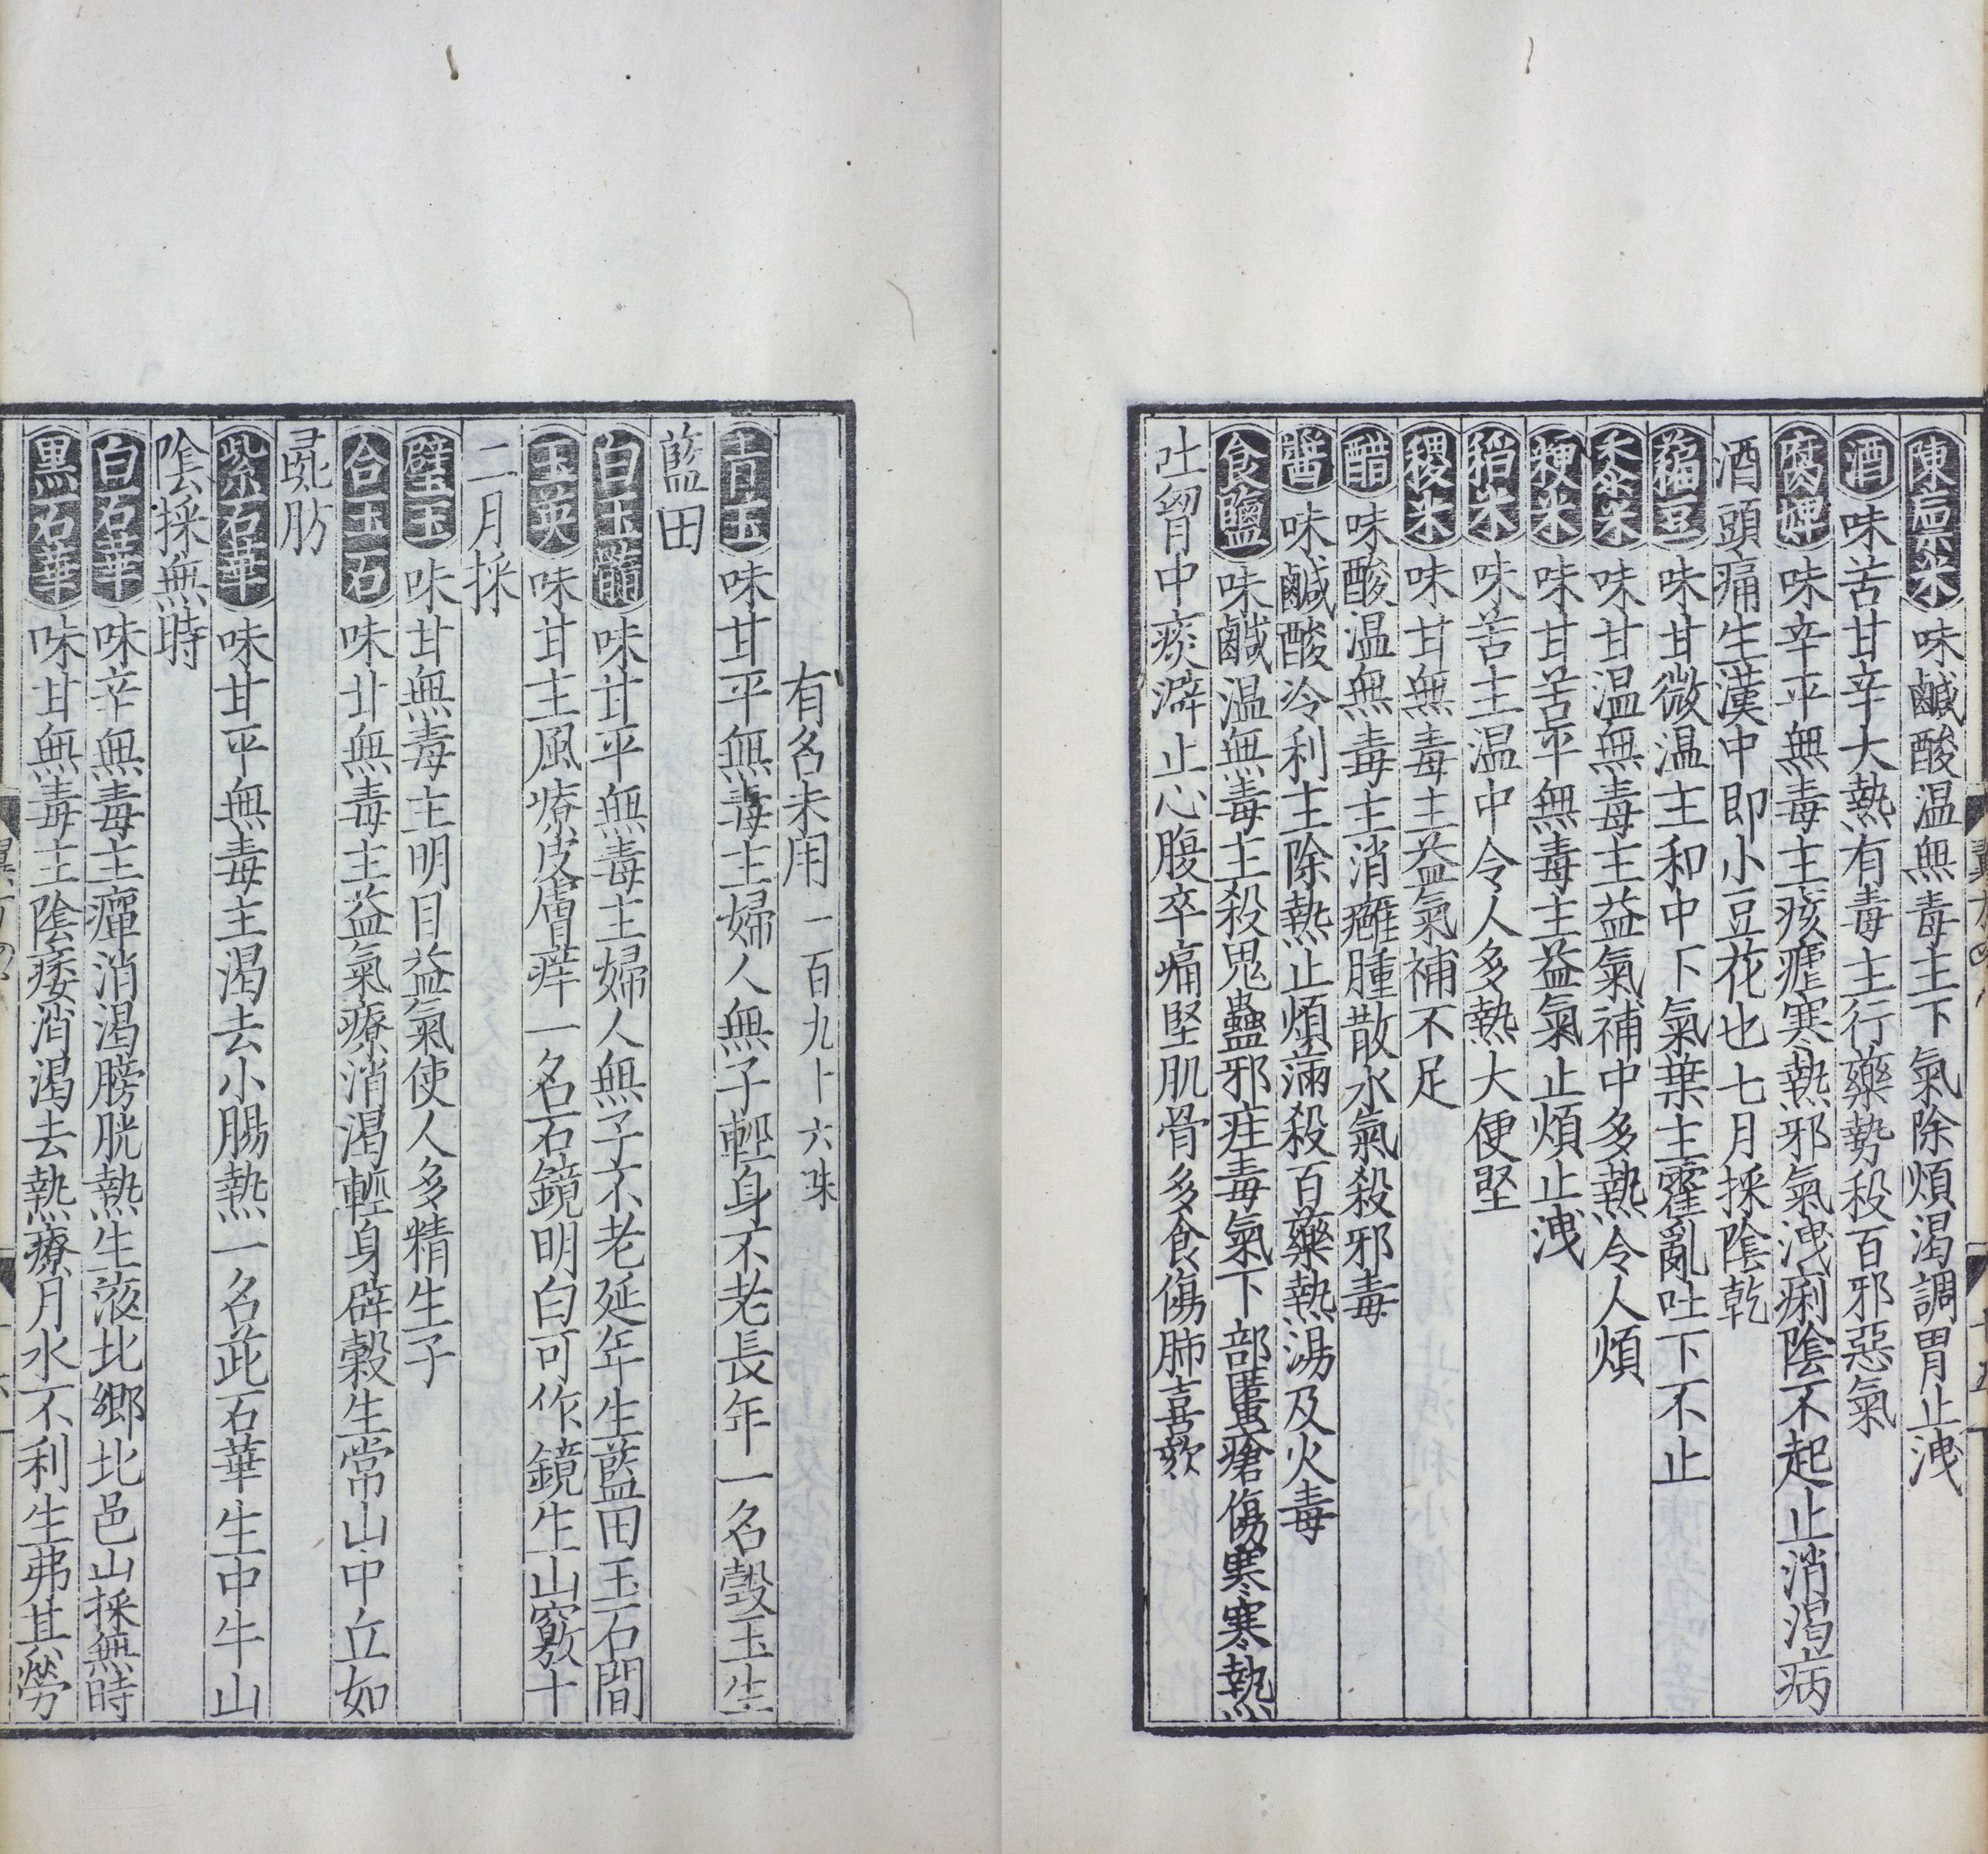 陳廩米味鹹酸温無毒主下氣除煩渴調胃止洩
酒味苦甘辛大熱有毒主行藥勢殺百邪惡氣
腐婢味辛平無毒主痎瘧寒熱邪氣洩痢隂不起止消渴病
酒頭痛生漢中即小豆花也七月採隂乾
藊豆味甘微温主和中下氣葉主霍亂吐下不止
黍米味甘温無毒主益氣補中多熱令人煩
粳米味甘苦平無毒主益氣止煩止洩
稻米味苦主温中令人多熱大便堅
稷米味甘無毒主益氣補不足
醋味酸温無毒主消癰腫散水氣殺邪毒
醬味鹹酸冷利主除熱止煩滿殺百藥熱湯及火毒
食鹽味鹹温無毒主殺鬼蠱邪疰毒氣下部䘌瘡傷寒寒熱
吐胷中痰澼止心腹卒痛堅肌骨多食傷肺喜欬
有名未用一百九十六味
青玉味甘平無毒主婦人無子輕身不老長年一名瑴玉生
藍田
白玉髓味甘平無毒主婦人無子不老延年生藍田玉石間
玉英味甘主風瘙皮膚痒一名石鏡明白可作鏡生山竅十
二月採
璧玉味甘無毒主明目益氣使人多精生子
合玉石味甘無毒主益氣療消渴輕身辟榖生常山中丘如
彘肪
紫石華味甘平無毒主渴去小腸熱一名茈石華生中牛山
隂採無時
白石華味辛無毒主癉消渴膀胱熱生液北鄉北邑山採無時
黒石華味甘無毒主隂痿消渴去熱療月水不利生弗其勞